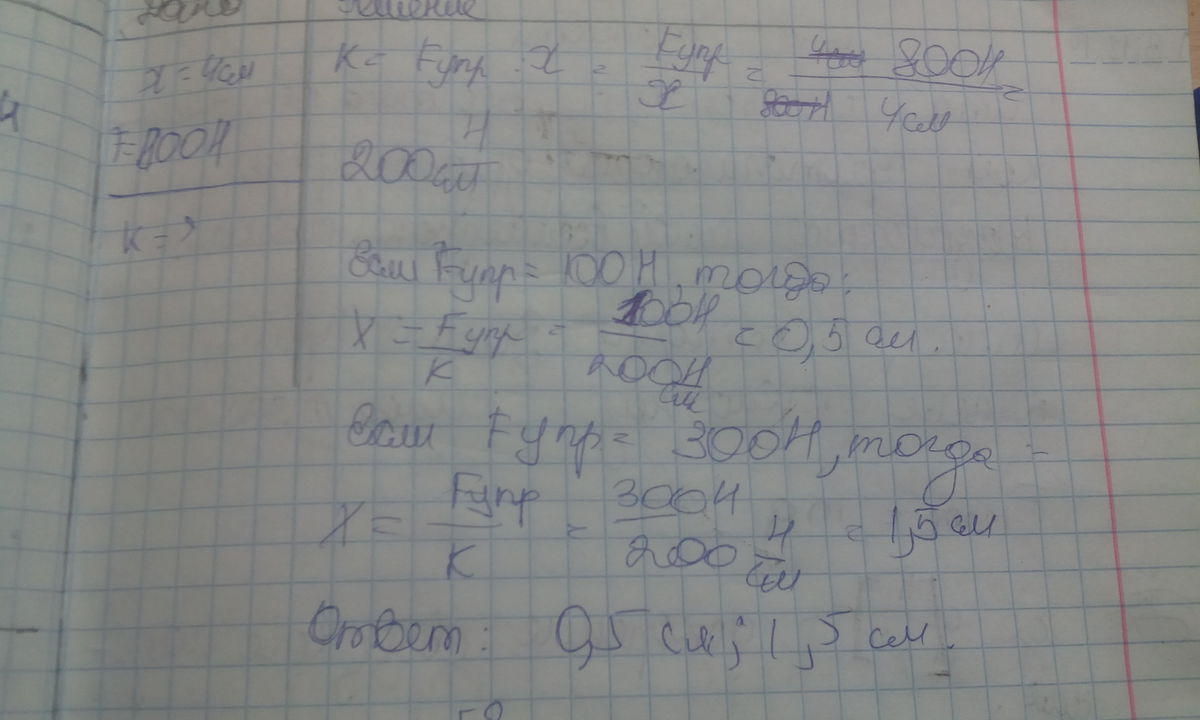 Дано Решение
x = 4см K = Fупр · x = Fупр/x = 800Н/4см =
F=800Н 200 Н/см
K = ?
Если Fупр = 100Н, тогда:
X = Fупр/K = 100Н/200Н/см = 0,5 см.
Если Fупр = 300Н, тогда -
X = Fупр/K = 300Н/200 Н/см = 1,5 см
Ответ: 0,5 см; 1,5 см.